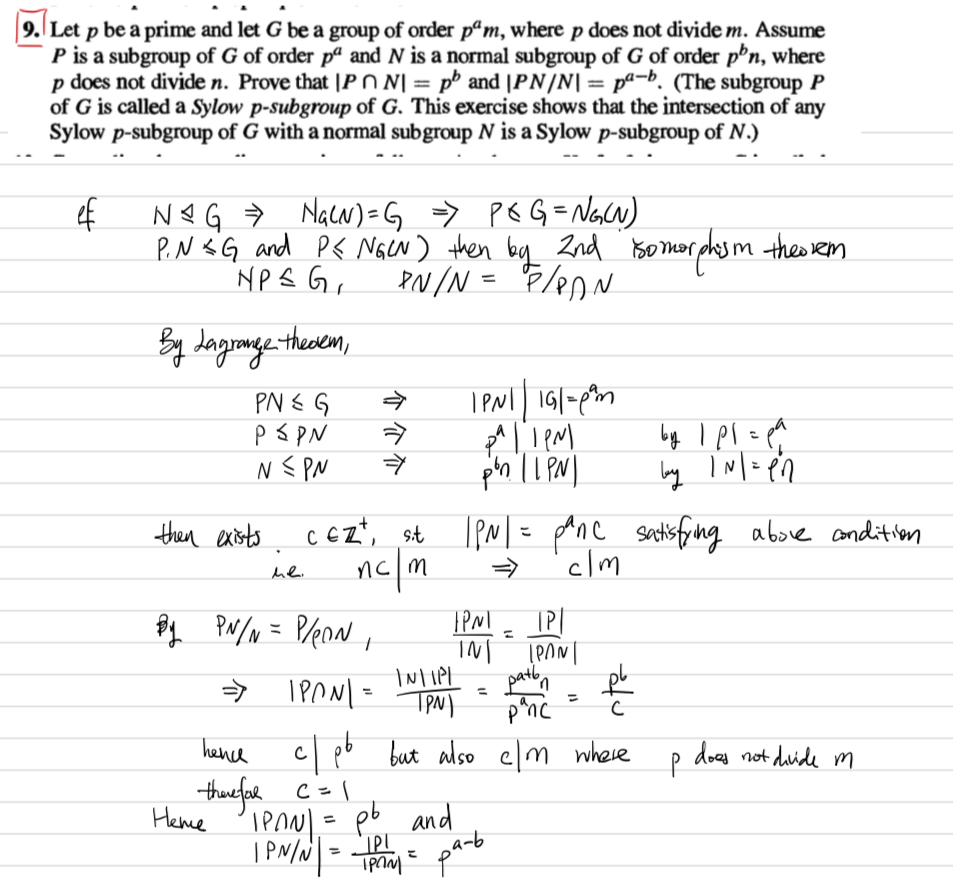 9. Let p be a prime and let G be a group of order pᵃm, where p does not divide m. Assume
P is a subgroup of G of order pᵃ and N is a normal subgroup of G of order pᵇn, where
p does not divide n. Prove that |P ∩ N| = pᵇ and |PN/N| = pᵃ⁻ᵇ. (The subgroup P
of G is called a Sylow p-subgroup of G. This exercise shows that the intersection of any
Sylow p-subgroup of G with a normal subgroup N is a Sylow p-subgroup of N.)
N ⊴ G ⇒ N_G(N) = G ⇒ P ≤ G = N_G(N)
P, N ≤ G and P ≤ N_G(N) then by 2nd isomorphism theorem
NP ≤ G, PN/N = P/P∩N
By Lagrange theorem,
PN ≤ G ⇒ |PN| | |G| = pᵃm
P ≤ PN ⇒ pᵃ | |PN| by |P| = pᵃ
N ≤ PN ⇒ pᵇn | |PN| by |N| = pᵇn
then exists c ∈ Z⁺, s.t |PN| = pᵃnc satisfying above condition
i.e. nc | m ⇒ c | m
By PN/N = P/P∩N, |PN|/|N| = |P|/|P∩N|
⇒ |P∩N| = |N||P|/|PN| = pᵃ⁺ᵇn/pᵃnc = pᵇ/c
hence c | pᵇ but also c | m where p does not divide m
therefore c = 1
Hence |P∩N| = pᵇ and
|PN/N| = |P|/|P∩N| = pᵃ⁻ᵇ